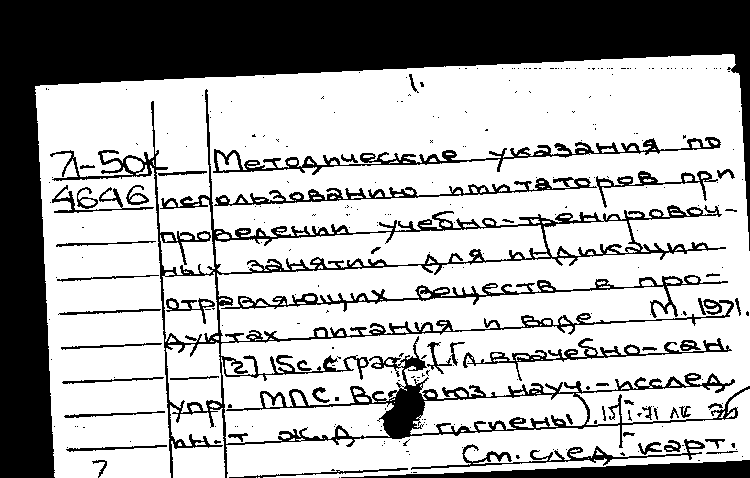 1.
71-50к Методические указания по
4646 использованию имитаторов при
проведении учебно-тренировоч-
ных занятий для индикации
отравляющих веществ в про-
дуктах питания и воде. М., 1971.
[2], 15с. с граф. (Гл. врачебно-сан.
упр. МПС. Всесоюз. науч.-исслед.
ин-т ж.д. гигиены).
См. след. карт.
7